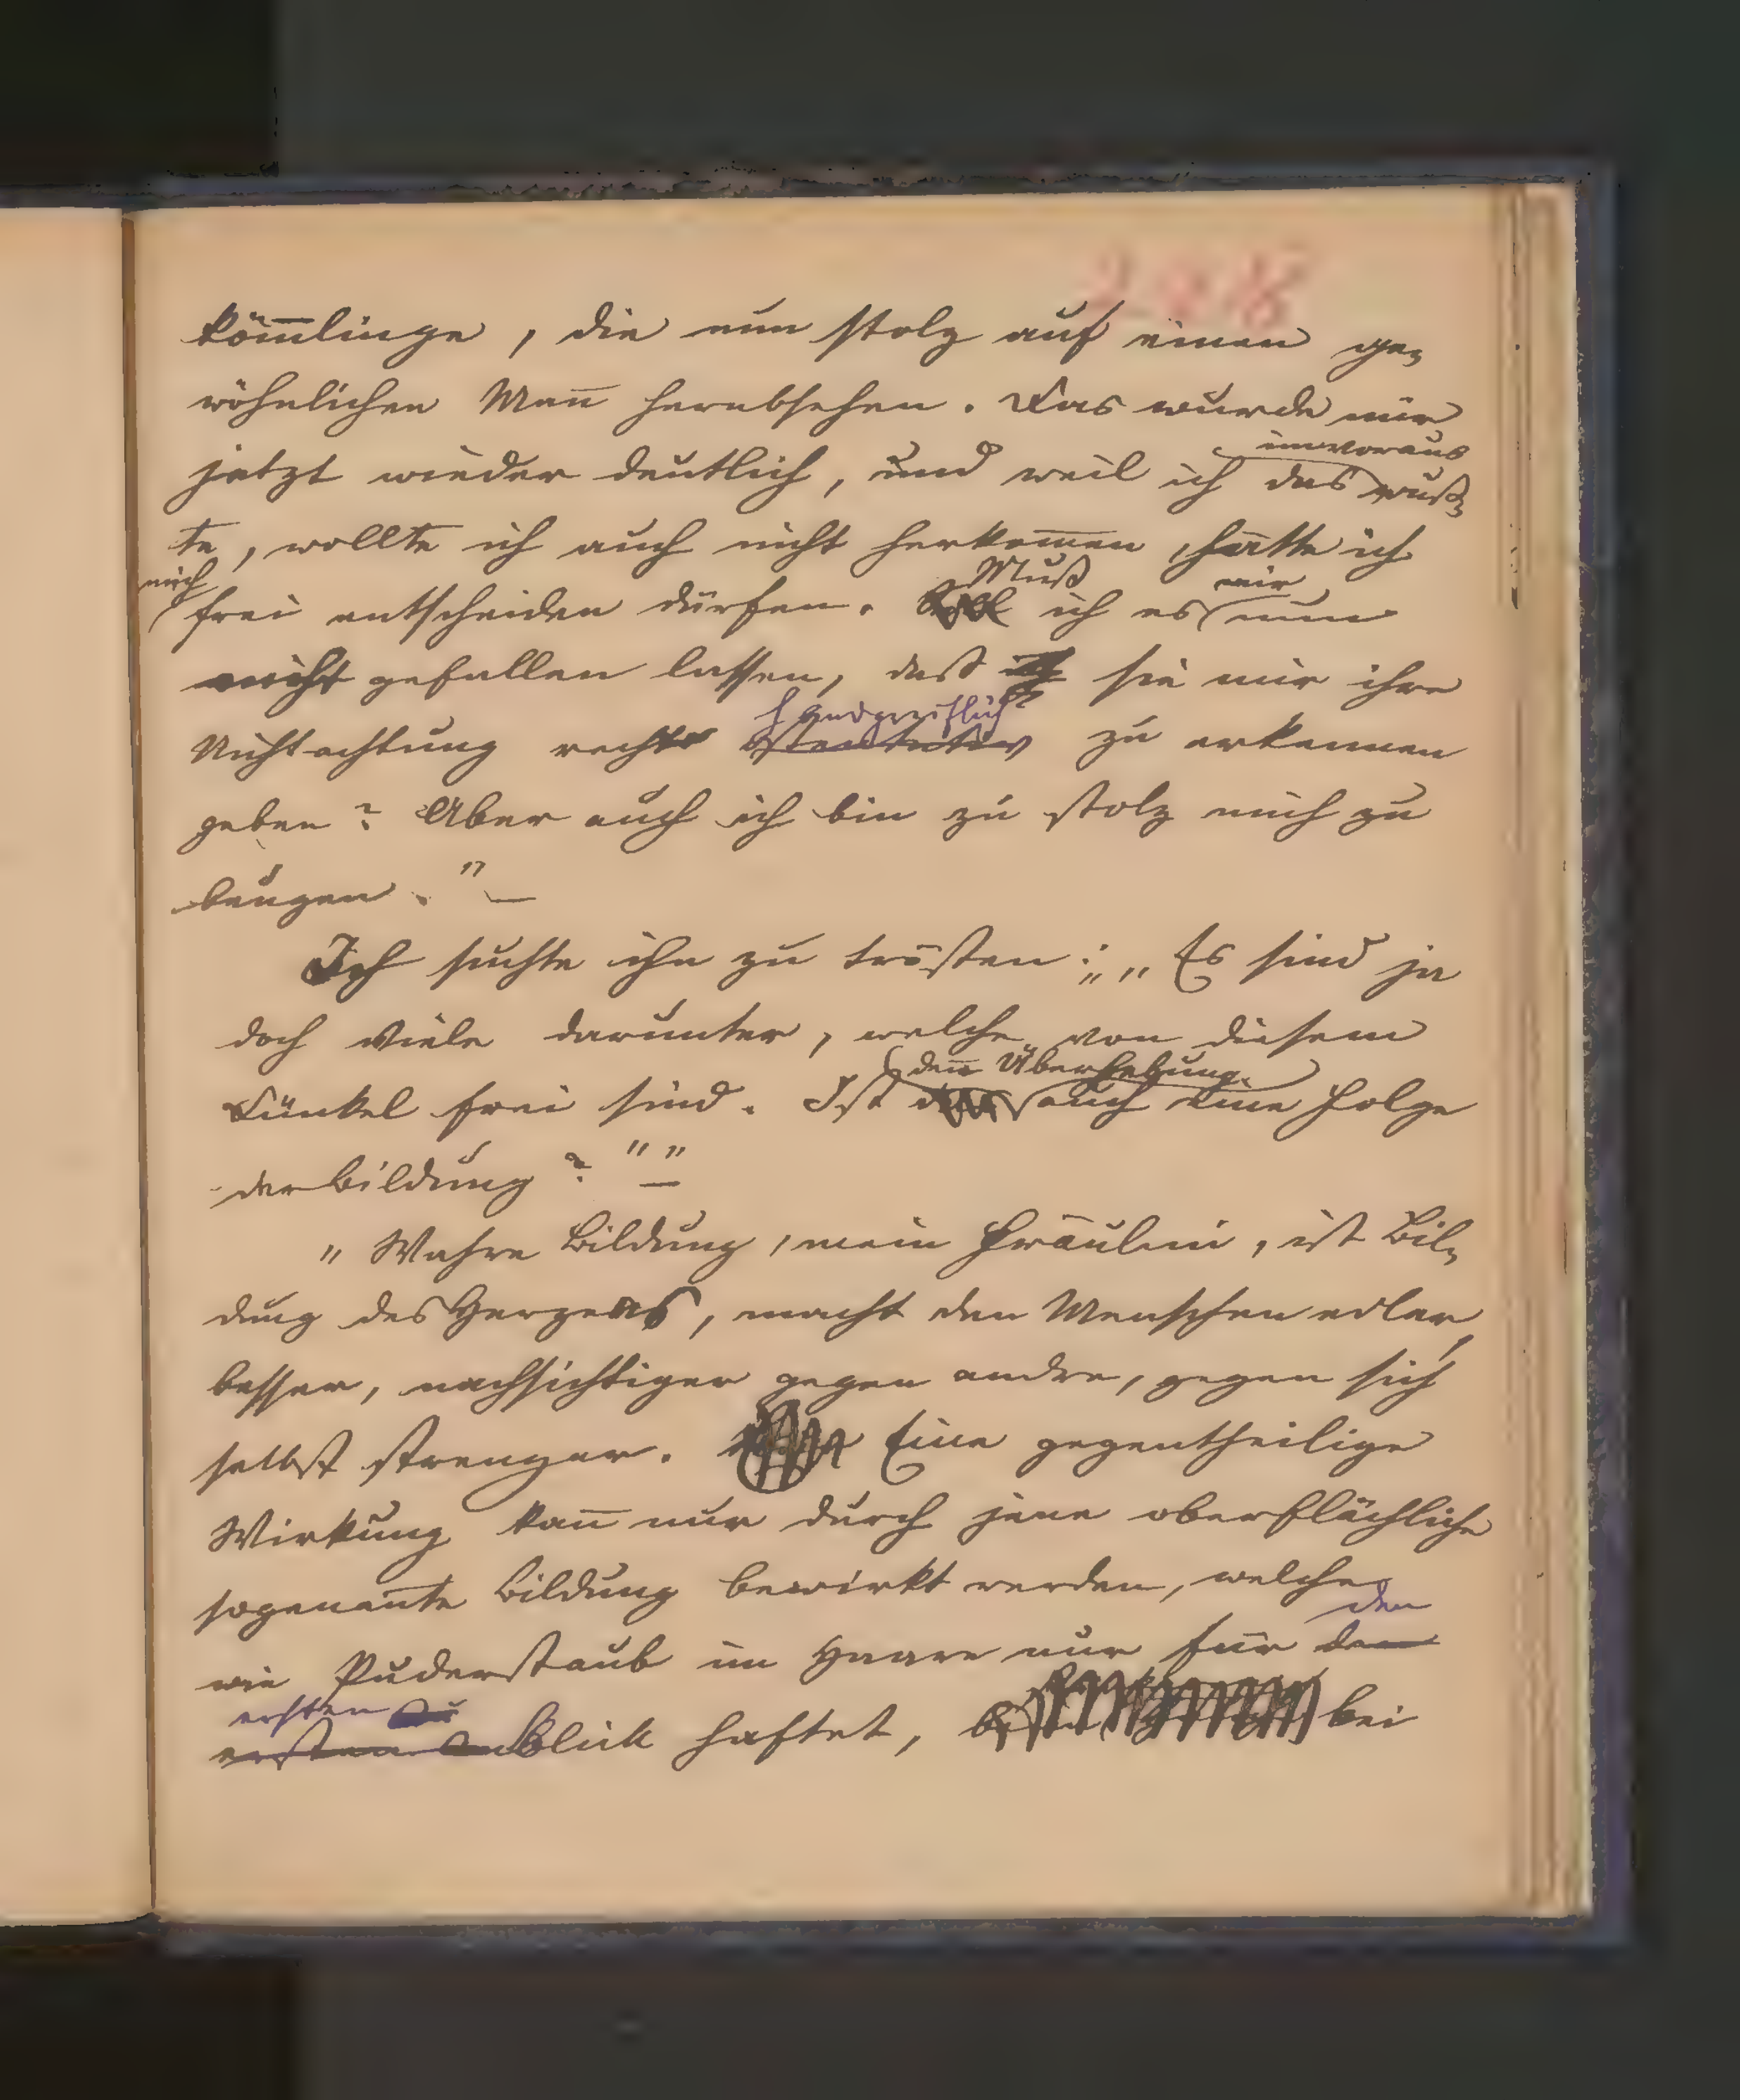 208
köm̅linge, die nun stolz auf einen ge-
wöhnlichen Man̅ herabsehen. Das wurde mir
imvoraus
jetzt wieder deutlich, und weil ich das wuß-
te, wollte ich auch nicht herkom̅en, hätte ich
mich Muß mir
frei entscheiden dürfen. Soll ich es nun
nicht gefallen lassen, daß ich sie mir ihre
handgreiflich
Nichtachtung recht ostentativ zu erkennen
geben? Aber auch ich bin zu stolz mich zu
beugen." —
Ich suchte ihn zu trösten: „„Es sind ja
doch Viele darunter, welche von diesem
den̅ Überhebung
Dünkel frei sind. Ist auch eine Folge
der Bildung?"" —
„Wahre Bildung, mein Fräulein, ist Bil-
dung des Herzens, macht den Menschen edler,
besser, nachsichtiger gegen andre, gegen sich
selbst strenger. Eine gegentheilige
Wirkung kan̅ nur durch jene oberflächliche
sogenan̅te Bildung bewirkt werden, welche
den
wie Puderstaub im Haare nur für den
ersten
ersten Anblick haftet, bei